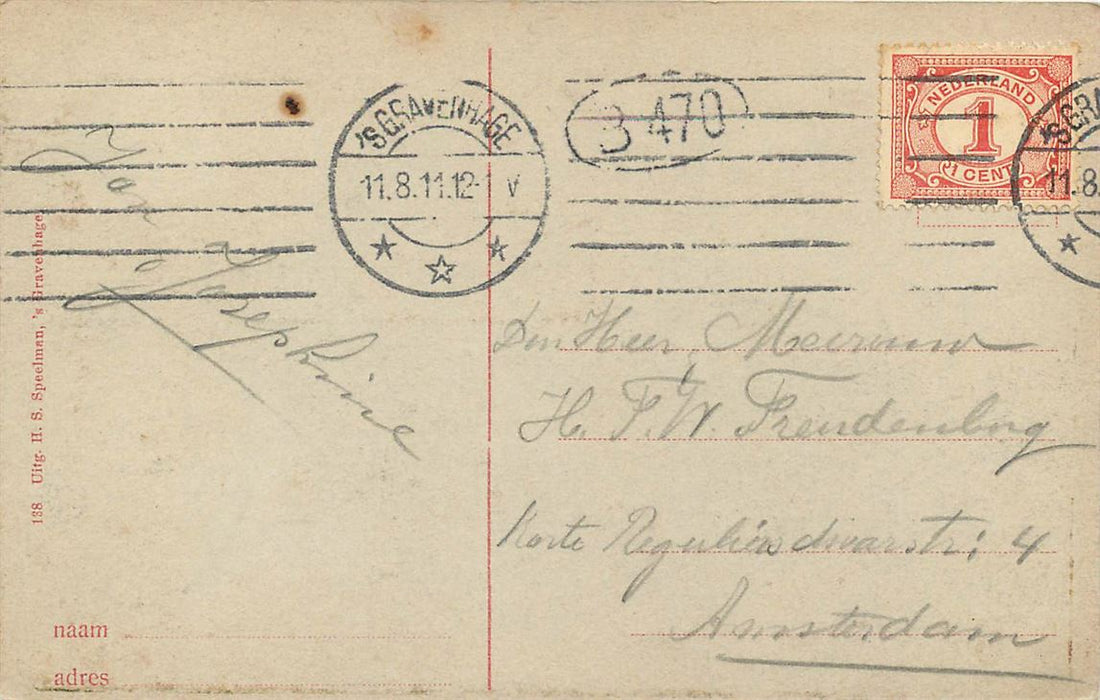 'SGRAVENHAGE
11.8.11.12-1 V
B 470
NEDERLAND
1
1 CENT
'SGRA
11.8.
Van
Josephine
Den Heer, Mevrouw
H. F. W. Freudenburg
Korte Reguliersdwarsstr: 4
Amsterdam
138 Uitg. H. S. Speelman, 's Gravenhage
naam
adres